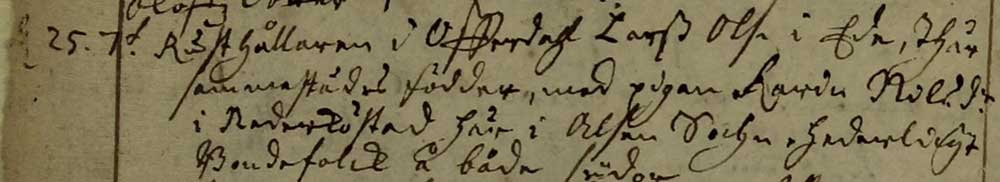 25. 7b. Rusthållaren i Offerdahl Larß Ols. i Ede, thär
sammastädes födder, med pigan Karin Nils dr
i Nederkostad här i Alsen Sochn. hederligt
Bondefolck å både sidor